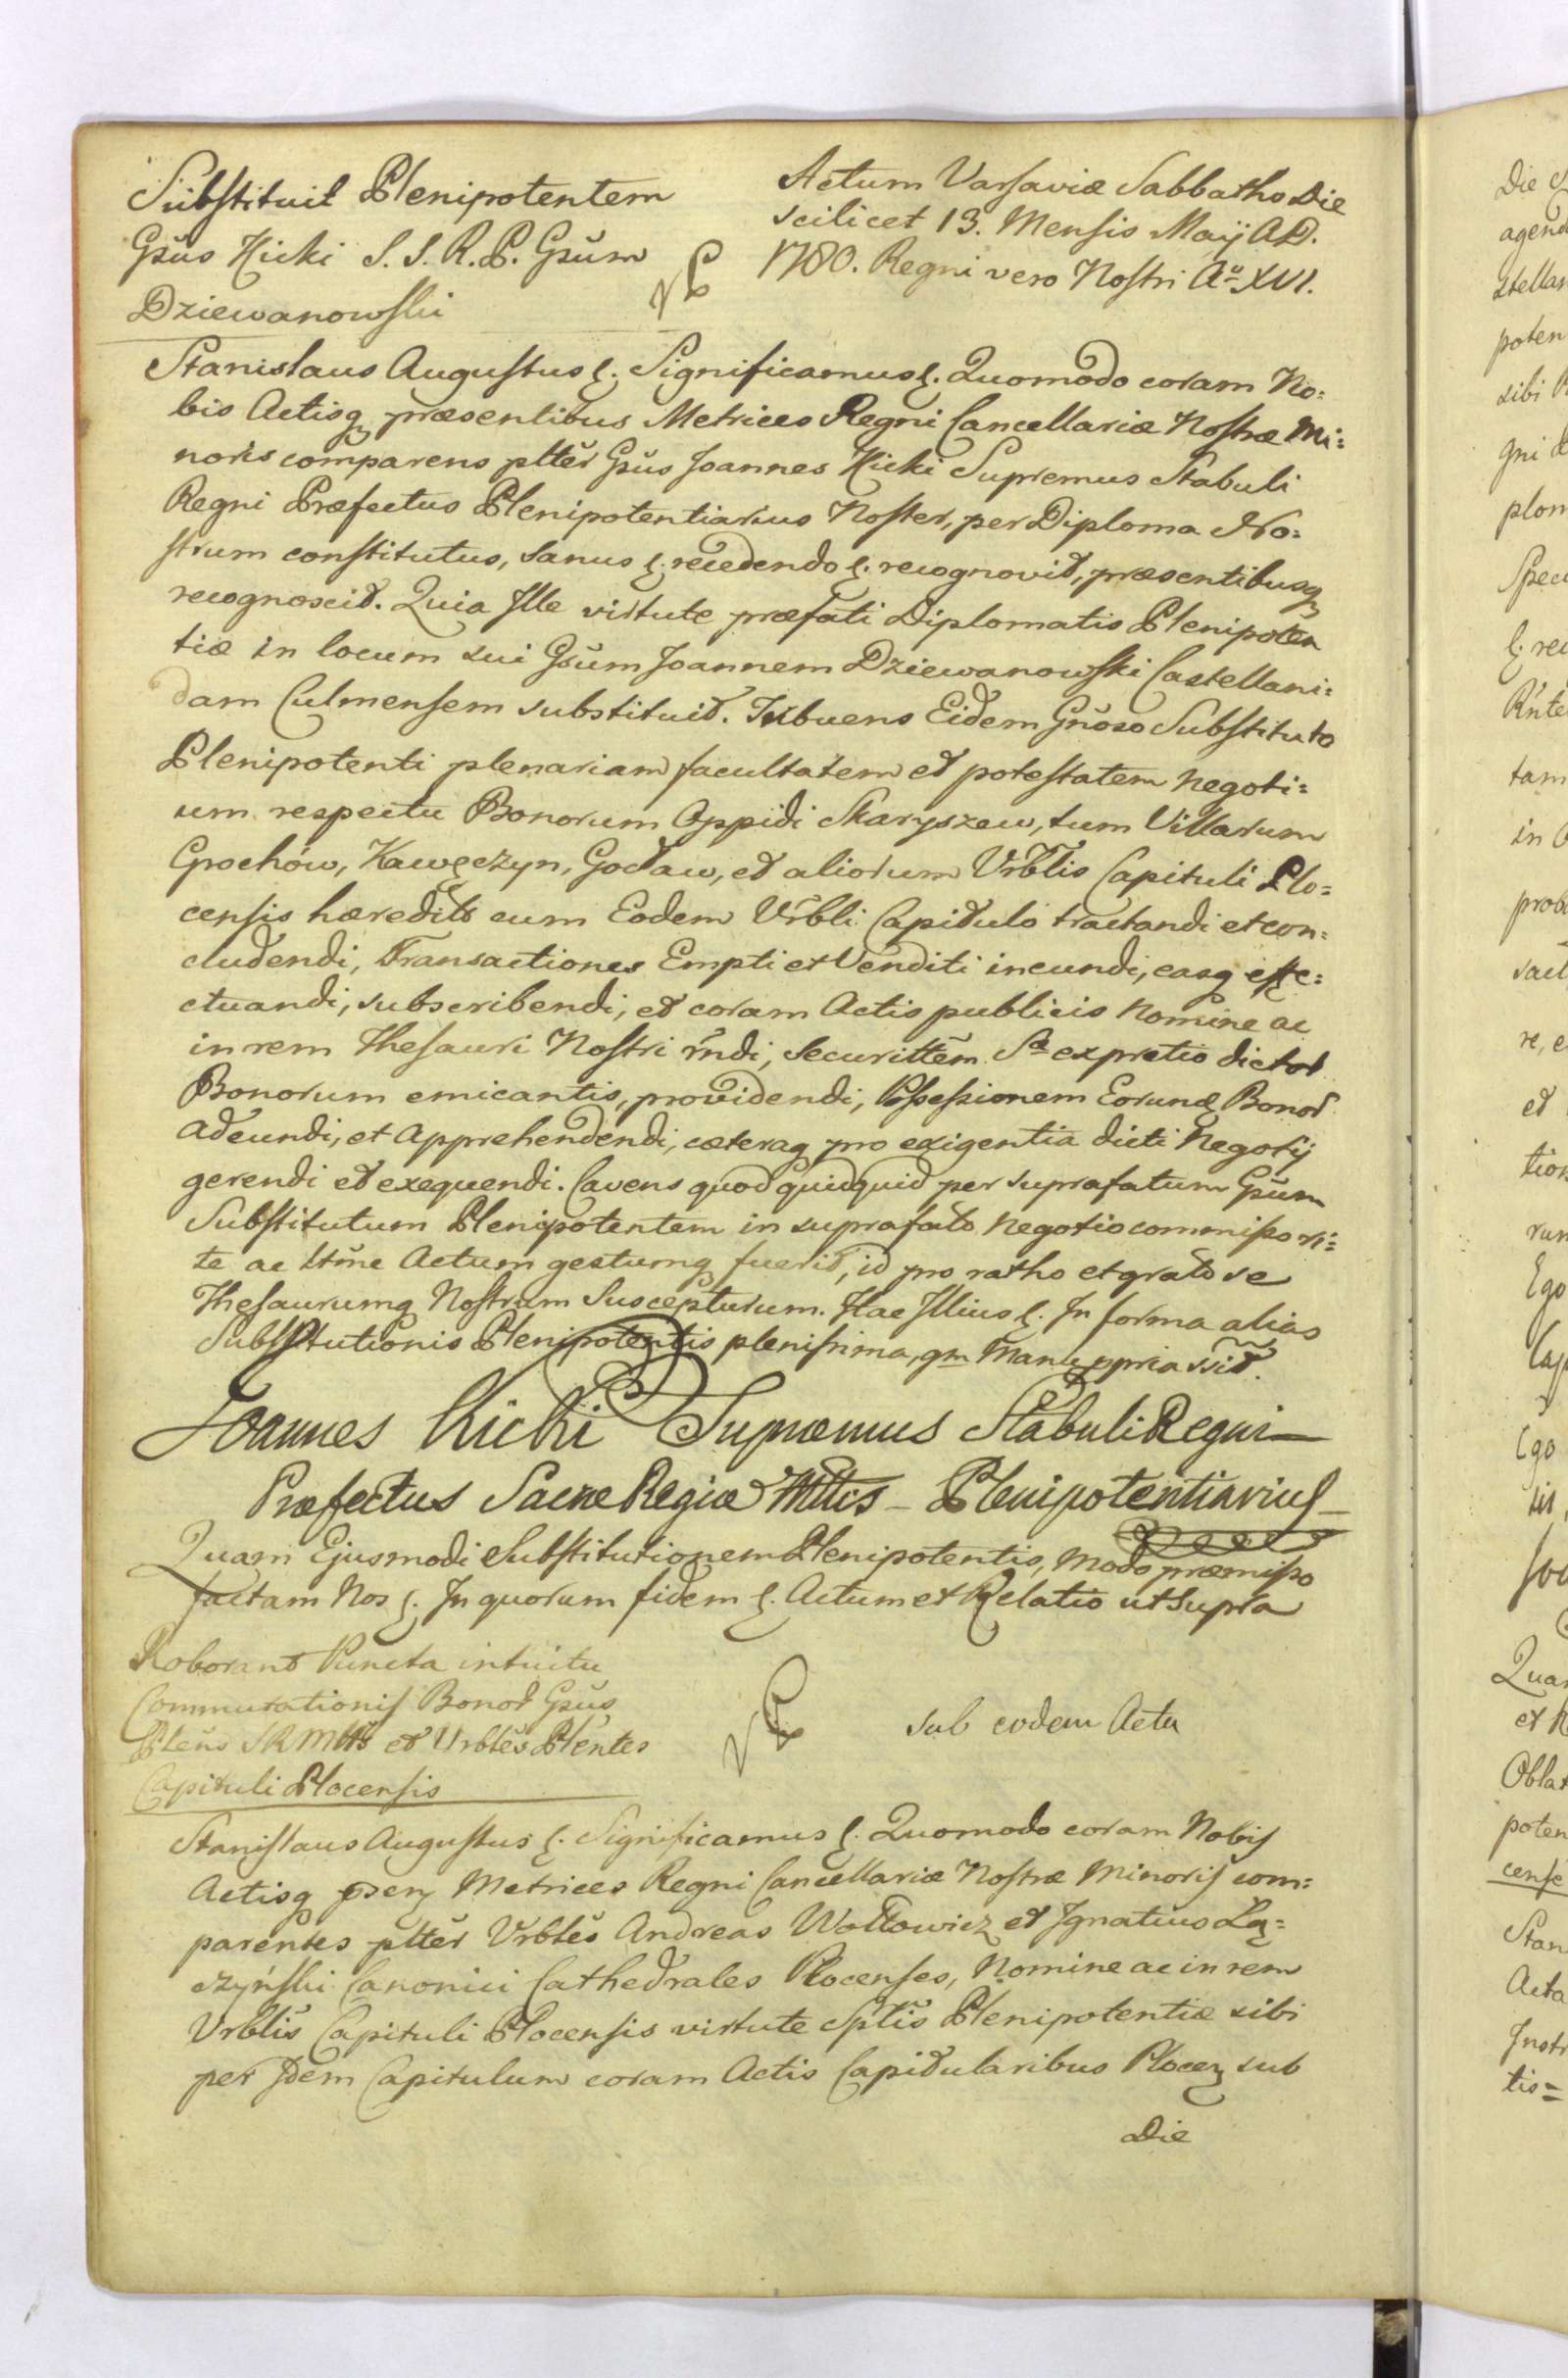 Substituit Plenipotentem
Gsus Kicki S. S. R. P. Gsum
Dziewanowski
Actum Varsaviæ Sabbatho Die
scilicet 13. Mensis Maij A.D.
1780. Regni vero Nostri Aº XVI.
Stanislaus Augustus &. Significamus &. Quomodo coram No=
bis Actisq præsentibus Metrices Regni Cancellariæ Nostræ Mi=
noris comparens plter Gsus Joannes Kicki Supremus Stabuli
Regni Præfectus Plenipotentiarius Noster, per Diploma No=
strum constitutus, sanus &. recedendo &. recognovit, præsentibusq
recognoscit. Quia Ille virtute præfati Diplomatis Plenipoten
tiæ in locum sui Gsum Joannem Dziewanowski Castellani=
dam Culmensem substituit. Tribuens Eidem Gnoso Substituto
Plenipotenti plenariam facultatem et potestatem Negoti=
um respectu Bonorum Oppidi Skaryszew, tum Villarum
Grochów, Kawęczyn, Gocław, et aliorum Vrblis Capituli Plo=
censis hæredits cum Eodem Vrbli Capitulo tractandi et con=
cludendi, Transactiones Empti et Venditi ineundi, easq effe=
ctuandi, subscribendi, et coram Actis publicis Nomine ac
in rem Thesauri Nostri rndi, securittem Sæ ex pretio dictor
Bonorum emicantis, providendi, Possessionem Eorund Bonor
adeundi, et Apprehendendi, cæteraq pro exigentia dicti Negotij
gerendi et exequendi. Cavens quod quidquid per suprafatum Gsum
Substitutum Plenipotentem in suprafato Negotio commisso ri=
te ac ltme Actum gestumq fuerit, id pro ratho et grato se
Thesaurumq Nostrum Suscepturum. Hac Illius &. In forma alias
Substitutionis Plenipotentis plenissima, qm Manu ppria ssit.
Joannes Kicki Supremus Stabuli Regni
Præfectus Sacræ Regiæ Mttis Plenipotentiarius
Quam Ejusmodi Substitutionem Plenipotentis, modo præmisso
factam Nos &. In quorum fidem &. Actum et Relatio ut supra
Roborant Puncta intuitu
Commutationis Bonor Gsus
Plens SRMttis et Vrbles Plentes
Capituli Plocensis
sub eodem Actu
Stanislaus Augustus &. Significamus &. Quomodo coram Nobis
Actisq psen Metrices Regni Cancellariæ Nostræ Minoris com=
parentes plter Vrbles Andreas Wołłowicz et Ignatius Łą=
czyński Canonici Cathedrales Plocenses, Nomine ac in rem
Vrblis Capituli Plocensis virtute Sptis Plenipotentiæ sibi
per Idem Capitulum coram Actis Capitularibus Plocen sub
Die